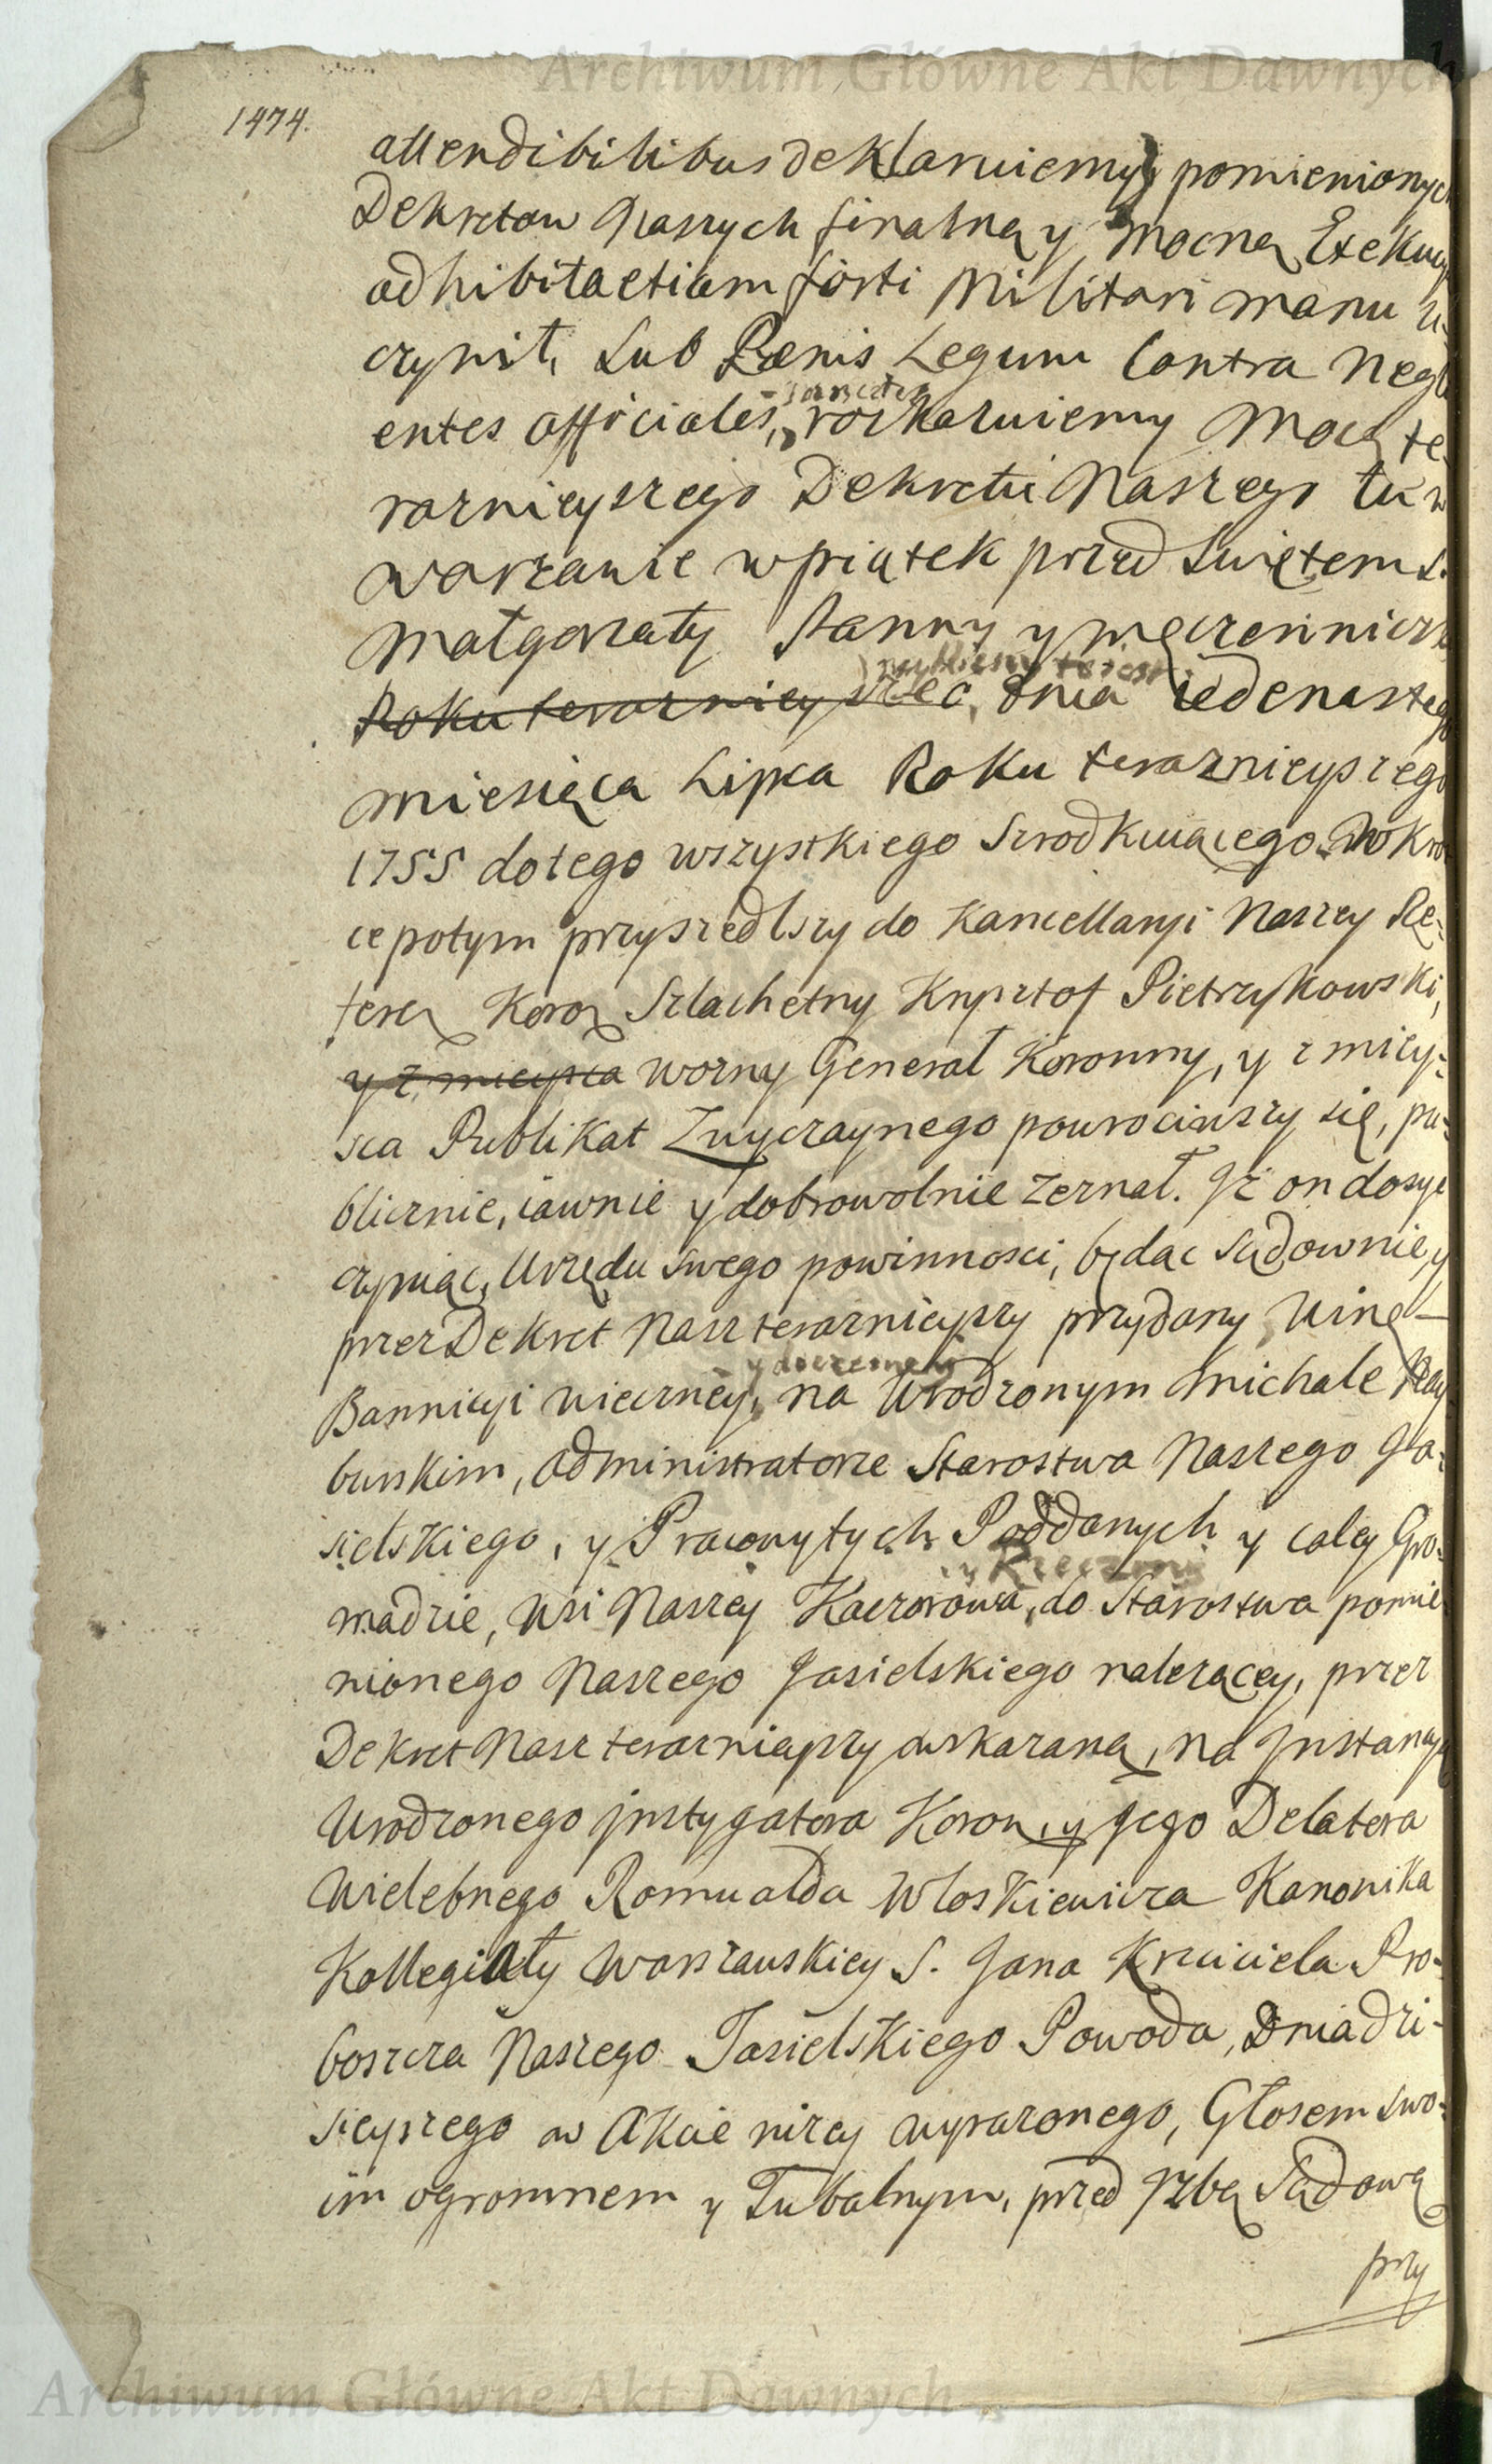 Archiwum Główne Akt Dawnych
1474.
attendibilibus deklaruiemy) pomienionych
Dekretow Naszych finalną y mocną Exekucyą
adhibita etiam forti Militari manu u-
czynił, Sub Pœnis Legum Contra Negli
entes officiales, -sancitis roskazuiemy Mocą te-
raznieyszego Dekretu Naszego tu w
warszawie w piątek przed Swiętem S.
Małgorzaty Panny y męczenniczki
Roku teraznieyszec, dnia iedenastego
miesiąca Lipca Roku teraznieyszego
1755 do tego wszystkiego Szrodkuiącego. W krot
ce potym przyszedlszy do Kancellaryi Naszey Re-
ferẽ Koroñ Szlachetny Krysztof Pietrzykowski,
y z mieysca wozny Generał Koronny, y z miey-
sca Publikat Zwyczaynego powrociwszy się, pu-
blicznie, iawnie y dobrowolnie zeznał. Iż on dosyc
czyniąc, Urzędu swego powinnosci, będąc sądownie, y
przez Dekret Nasz teraznieyszy przydany Winę
y doczesney
Bannicyi wieczney, na Urodzonym Michale Ray
burskim, administratorze Starostwa Naszego Ja-
sielskiego, y Pracowytych Poddanych y całey Gro-
madzie, Wsi Naszey Kaczorowa, do Starostwa pomie
nionego Naszego Jasielskiego należącey, przez
Dekret Nasz teraznieyszy wskazaną, na Instancyą
Urodzonego instygatora Koron, y Jego Delatora
Wielebnego Romualda Wloskiewicza Kanonika
Kollegiaty Warszawskiey S. Jana Krzciciela Pro-
boszcza Naszego Jasielskiego Powoda, Dnia dzi-
sieyszego w Akcie nizey wyrazonego, Głosem swo-
im ogromnem y Tubalnym, przed Izbą Sądową
przy
Archiwum Główne Akt Dawnych